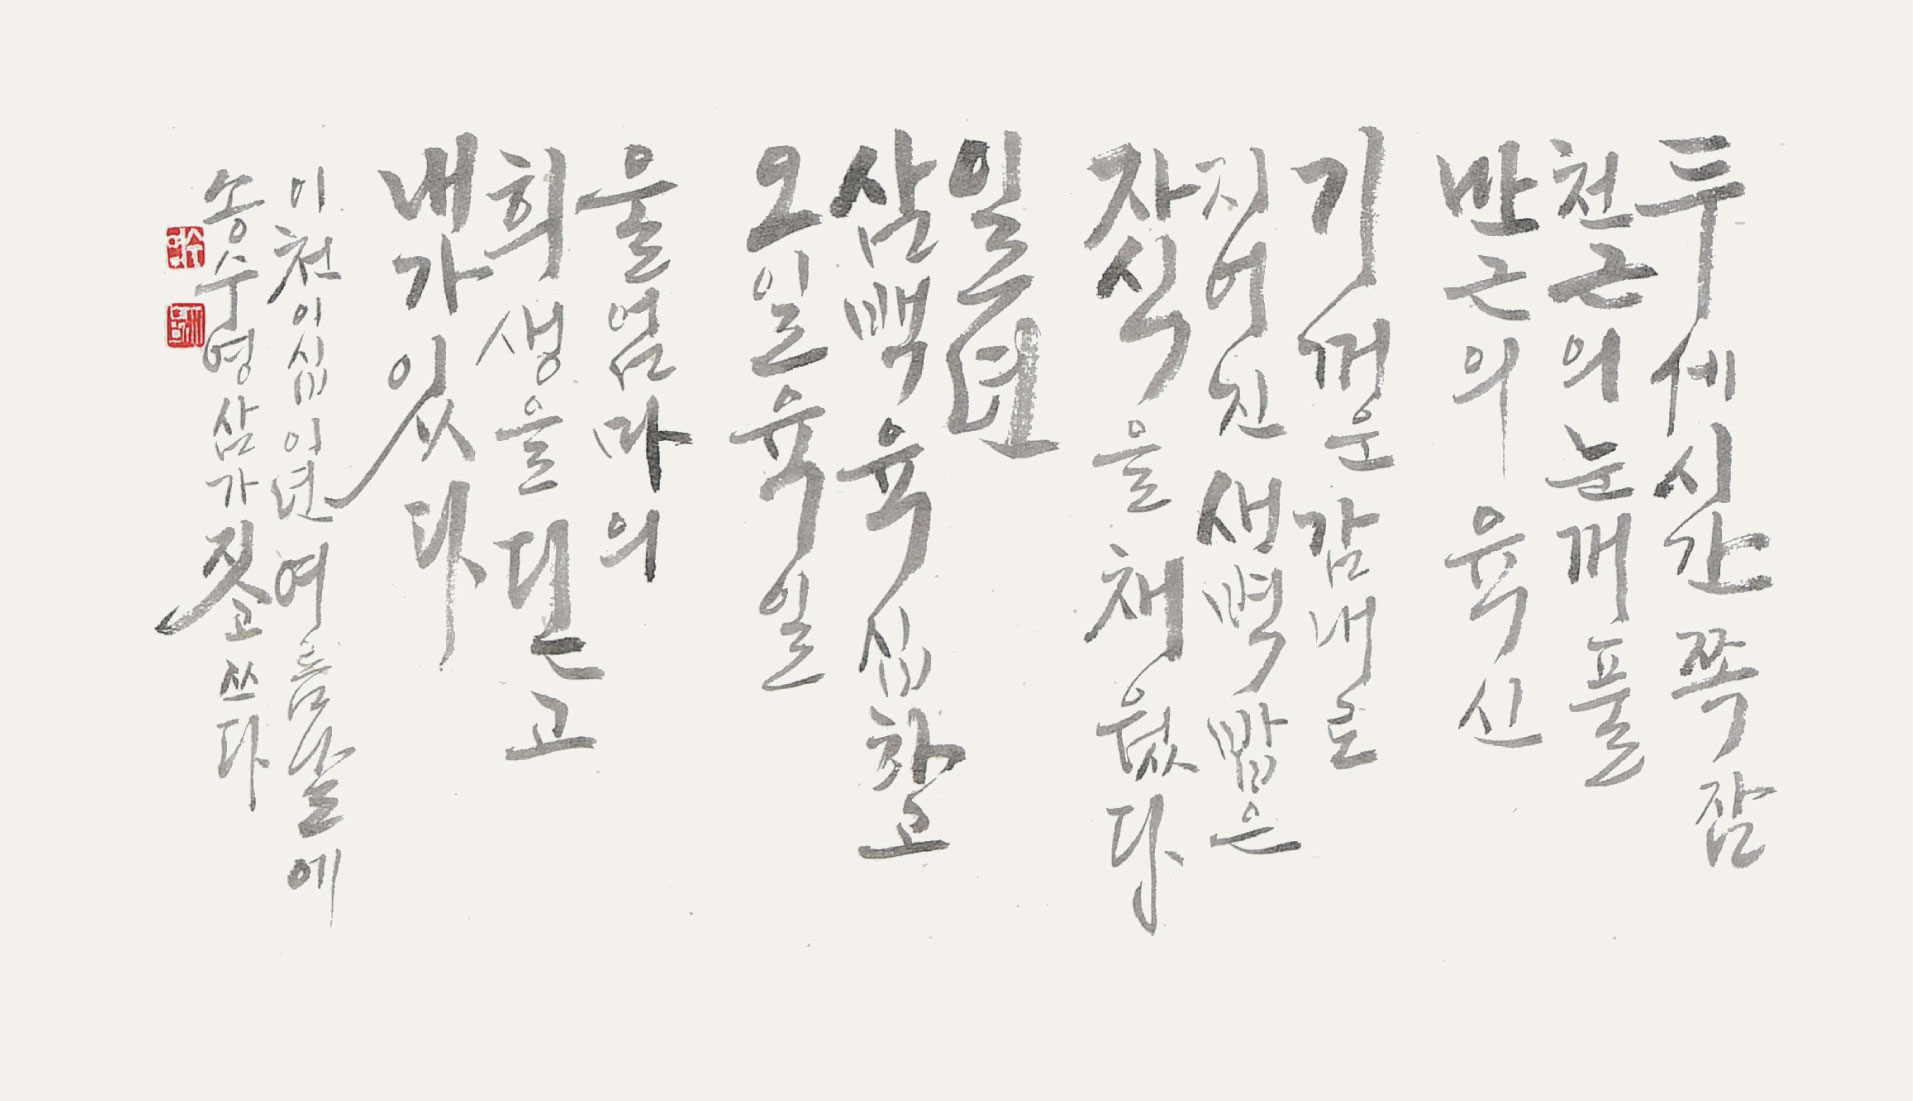 두세시간 쪽잠
천근의 눈꺼풀
만근의 육신
기꺼운 감내로
지어진 새벽밥은
자식을 채웠다
일년
삼백육십하고
오일 육일
울엄마의
희생을 딛고
내가 있다
이천이십이년 여름날에
송수영 삼가 짓고 쓰다